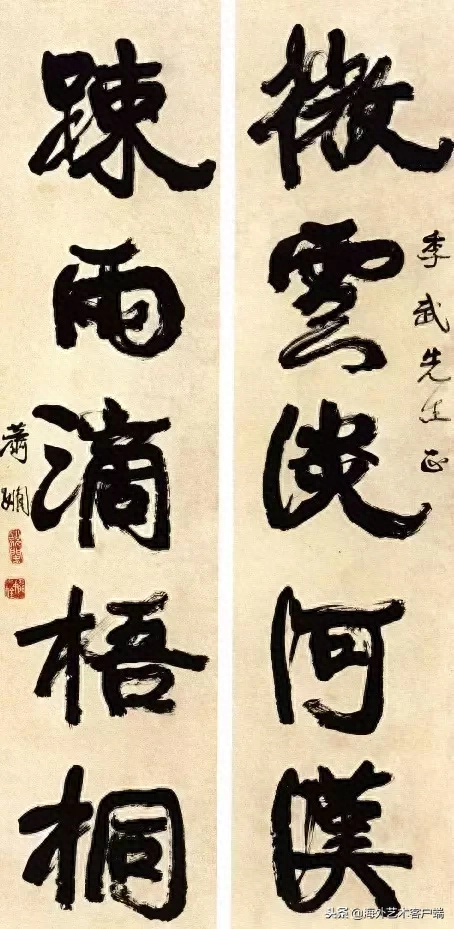 微雲淡河漢
季武先生正
踈雨滴梧桐
蕭嫻
头条@海外艺术客户端